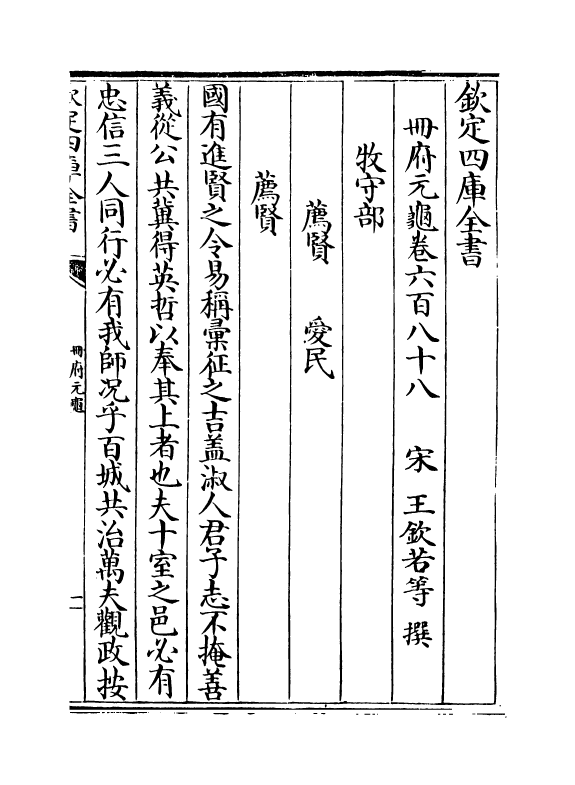 欽定四庫全書
冊府元龜卷六百八十八　宋　王欽若等　撰
牧守部
薦賢　愛民
薦賢
國有進賢之令易稱彚征之吉盖淑人君子志不掩善
義從公共冀得英哲以奉其上者也夫十室之邑必有
忠信三人同行必有我師况乎百城共治萬夫觀政按
欽定四庫全書
冊府元龜